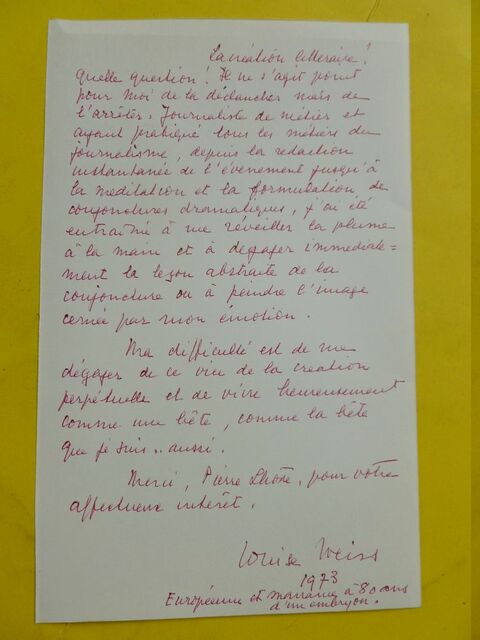 La création littéraire !
Quelle question ! Il ne s'agit point
pour moi de la déclancher mais de
l'arrêter. Journaliste de métier et
ayant pratiqué tous les métiers du
journalisme, depuis la rédaction
instantanée de l'évènement jusqu'à
la méditation et la formulation de
conjonctures dramatiques, j'ai été
entraînée à me réveiller la plume
à la main et à dégager immédiate=
ment la leçon abstraite de la
conjoncture ou à peindre l'image
cernée par mon émotion.
Ma difficulté est de me
dégager de ce vice de la création
perpétuelle et de vivre heureusement
comme une bête, comme la bête
que je suis.. aussi.
Merci, Pierre Lhoste, pour votre
affectueux intérêt.
Louise Weiss
1973
Européenne et marraine à 80 ans
d'un embryon.